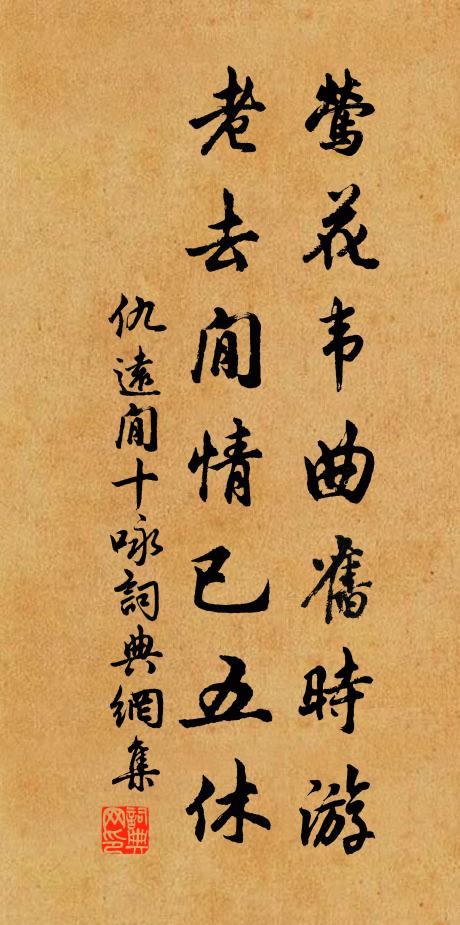 莺花韦曲舊時游
老去閒情已五休
仇遠閒十咏詞典網集
詞典网印